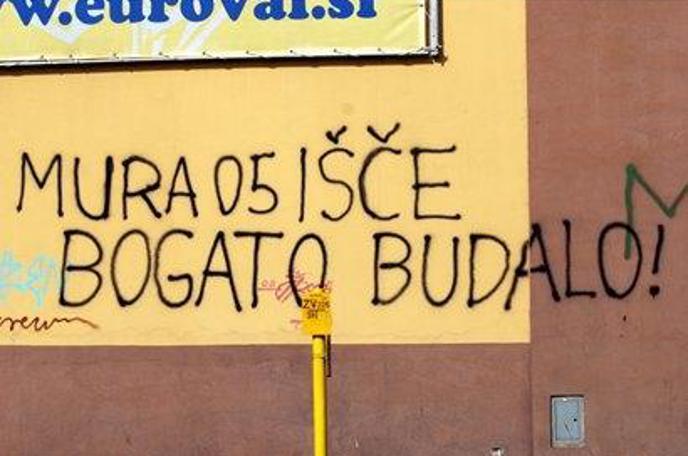 w.euroval.si
MURA 05 IŠČE
BOGATO BUDALO!